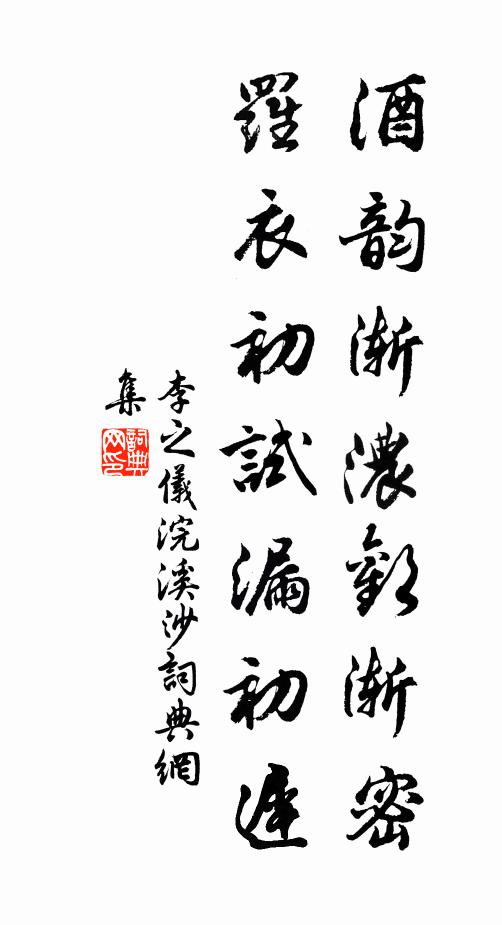 酒韵漸濃歡漸密
羅衣初試漏初遲
李之儀浣溪沙詞典網
集
詞典网印